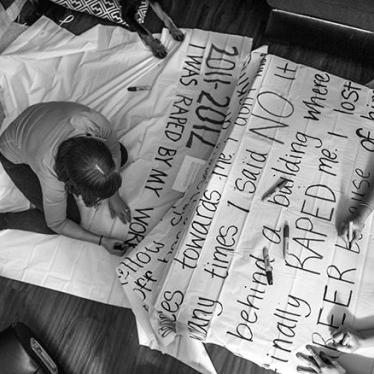 2011-2012
I WAS RAPED BY MY WORK
towards me. I
many times I said NO. It
behind a building where
finally RAPED me. I lost
CAREER because of